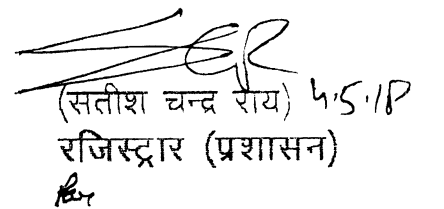 (सतीश चन्द्र राय) 4.5.18
रजिस्ट्रार (प्रशासन)